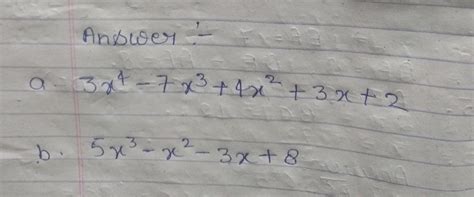 Answer :-
a. 3x⁴ - 7x³ + 4x² + 3x + 2
b. 5x³ - x² - 3x + 8